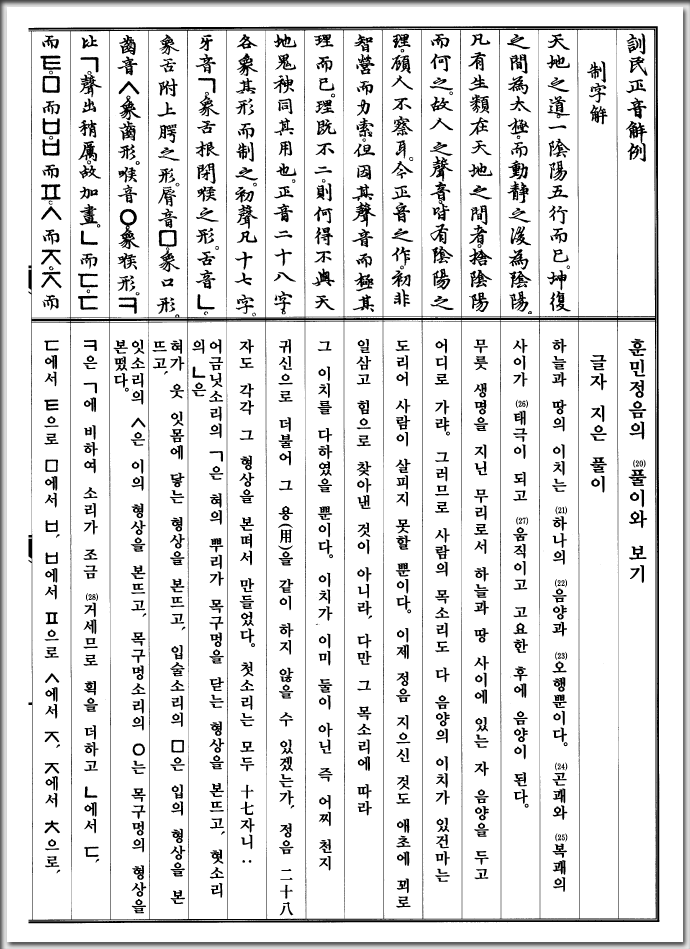 訓民正音解例
制字解
天地之道。一陰陽五行而已。坤復
之間為太極。而動静之後為陰陽。
凡有生類在天地之間者。捨陰陽
而何之。故人之聲音。皆有陰陽之
理。顧人不察耳。今正音之作。初非
智營而力索。但因其聲音而極其
理而已。理旣不二。則何得不與天
地鬼神同其用也。正音二十八字。
各象其形而制之。初聲凡十七字。
牙音ㄱ。象舌根閉喉之形。舌音ㄴ。
象舌附上腭之形。脣音ㅁ。象口形。
齒音ㅅ。象齒形。喉音ㅇ。象喉形。ㅋ
比ㄱ。聲出稍厲。故加畫。ㄴ而ㄷ。ㄷ
而ㅌ。ㅁ而ㅂ。ㅂ而ㅍ。ㅅ而ㅈ。ㅈ而
훈민정음의 (20)풀이와 보기
글자 지은 풀이
하늘과 땅의 이치는 (21)하나의 (22)음양과 (23)오행뿐이다。 (24)곤괘와 (25)복괘의
사이가 (26)태극이 되고 (27)움직이고 고요한 후에 음양이 된다。
무릇 생명을 지닌 무리로서 하늘과 땅 사이에 있는 자 음양을 두고
어디로 가랴。 그러므로 사람의 목소리도 다 음양의 이치가 있건마는
도리어 사람이 살피지 못할 뿐이다。 이제 정음 지으신 것도 애초에 꾀로
일삼고 힘으로 찾아낸 것이 아니라, 다만 그 목소리에 따라
그 이치를 다하였을 뿐이다。 이치가 이미 둘이 아닌 즉 어찌 천지
귀신으로 더불어 그 용(用)을 같이 하지 않을 수 있겠는가, 정음 二十八
자도 각각 그 형상을 본떠서 만들었다。 첫소리는 모두 十七자니‥
어금닛소리의 ㄱ은 혀의 뿌리가 목구멍을 닫는 형상을 본뜨고, 혓소리
의 ㄴ은
혀가 웃 잇몸에 닿는 형상을 본뜨고, 입술소리의 ㅁ은 입의 형상을 본
뜨고,
잇소리의 ㅅ은 이의 형상을 본뜨고, 목구멍소리의 ㅇ는 목구멍의 형상을
본떴다。
ㅋ은 ㄱ에 비하여 소리가 조금 (28)거세므로 획을 더하고 ㄴ에서 ㄷ,
ㄷ에서 ㅌ으로 ㅁ에서 ㅂ, ㅂ에서 ㅍ으로 ㅅ에서 ㅈ, ㅈ에서 ㅊ으로,